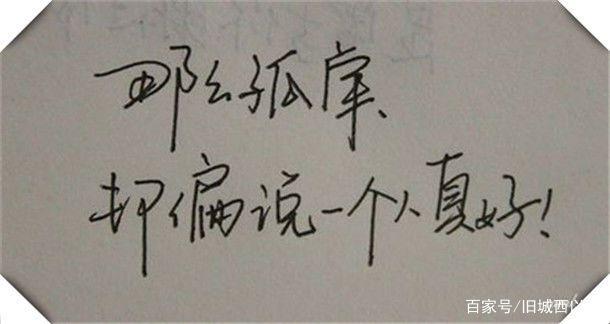 那么孤单、
却偏说一个人真好!
百家号/旧城西